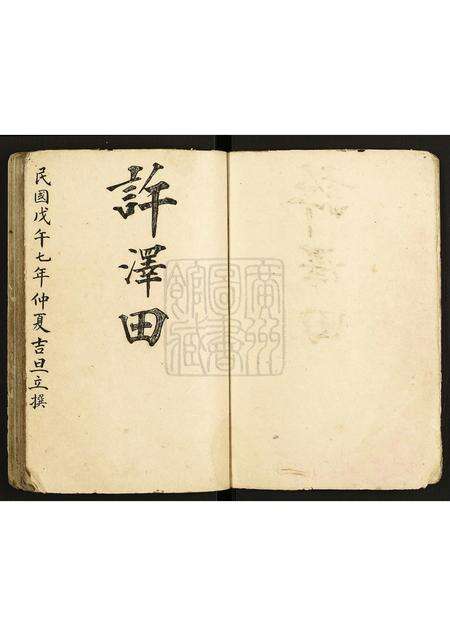 許澤田
民國戊午七年仲夏吉旦立撰
廣州
圖書
館藏